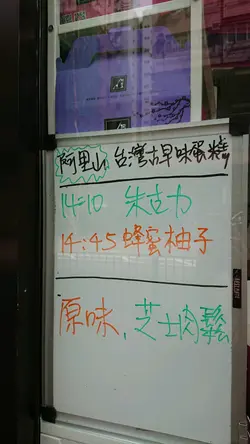 阿里山 台灣古早味蛋糕
14:10 朱克力
14:45 蜂蜜柚子
原味, 芝士肉鬆